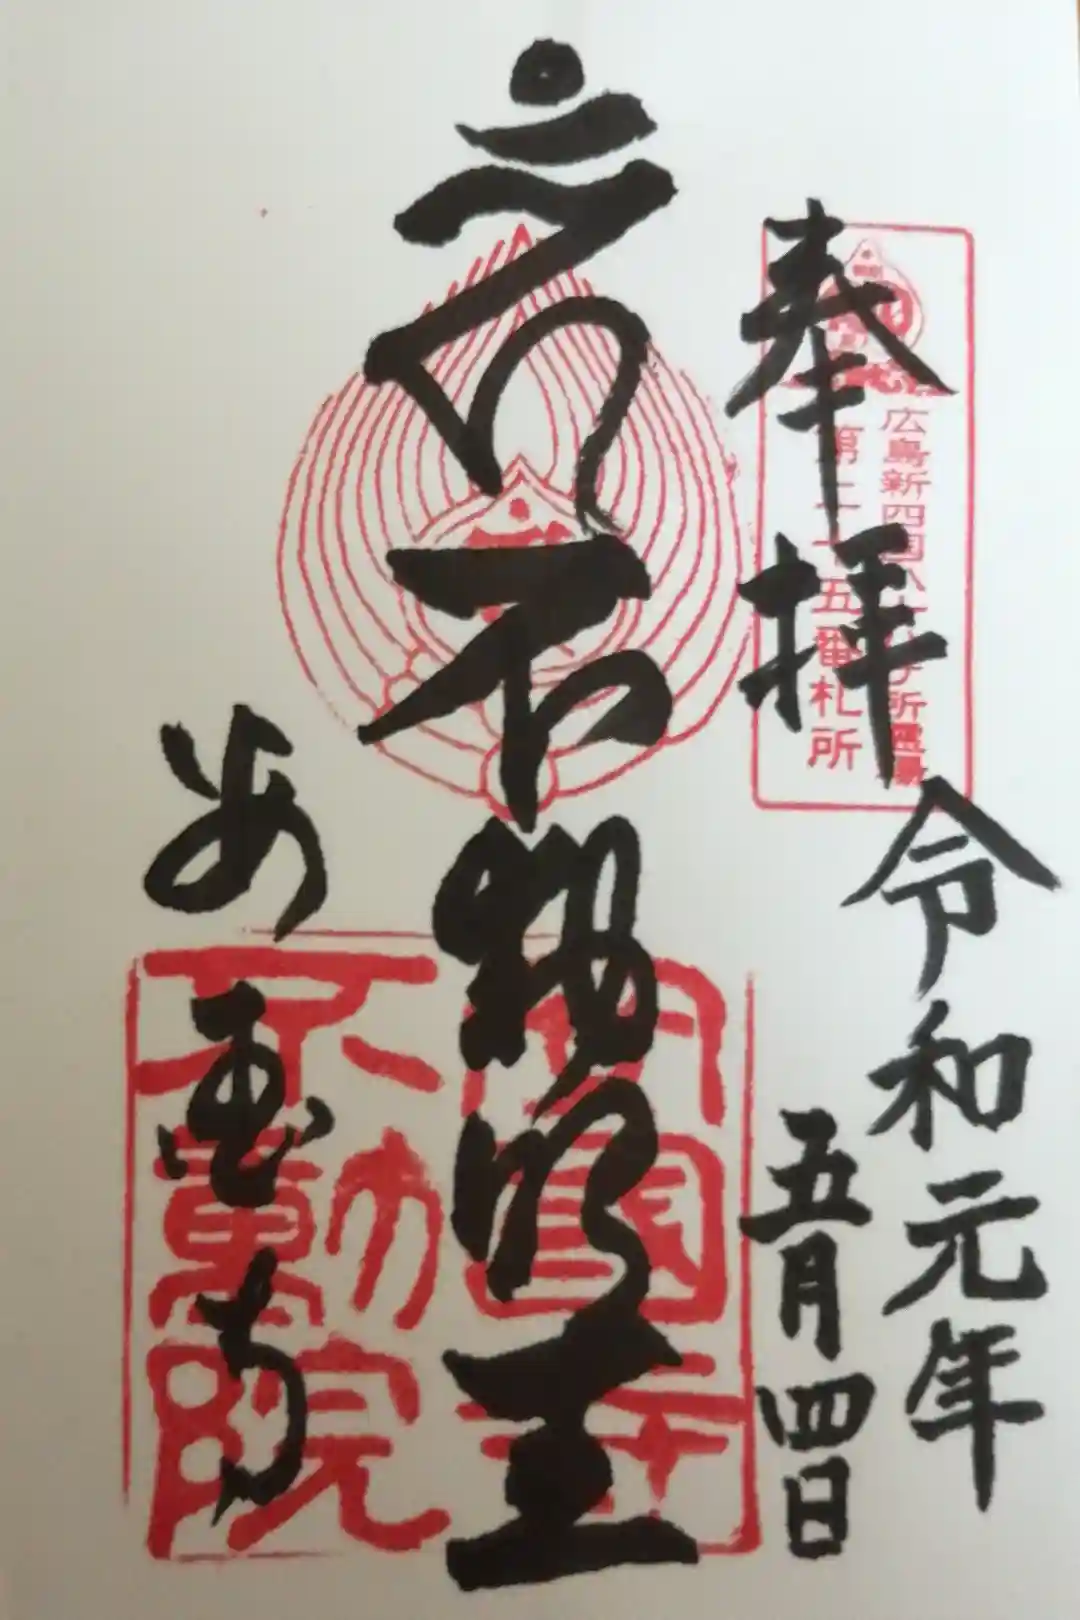 奉拝
令和元年
五月四日
広島新四国八十八ヶ所霊場
第二十五番札所
不動明王
安国寺
安国寺
不動院